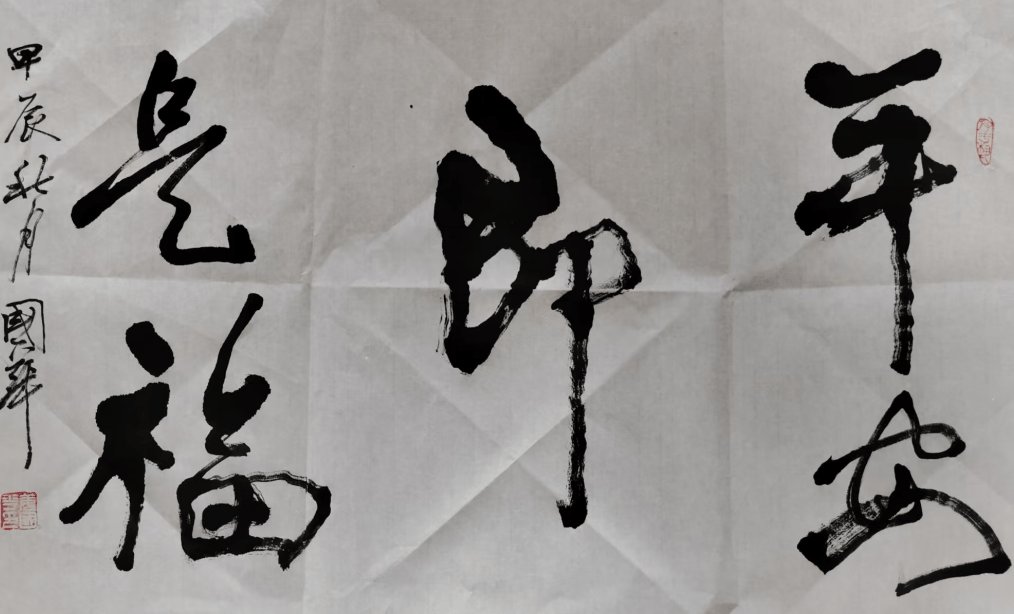 平安
即
是福
甲辰秋月
國華